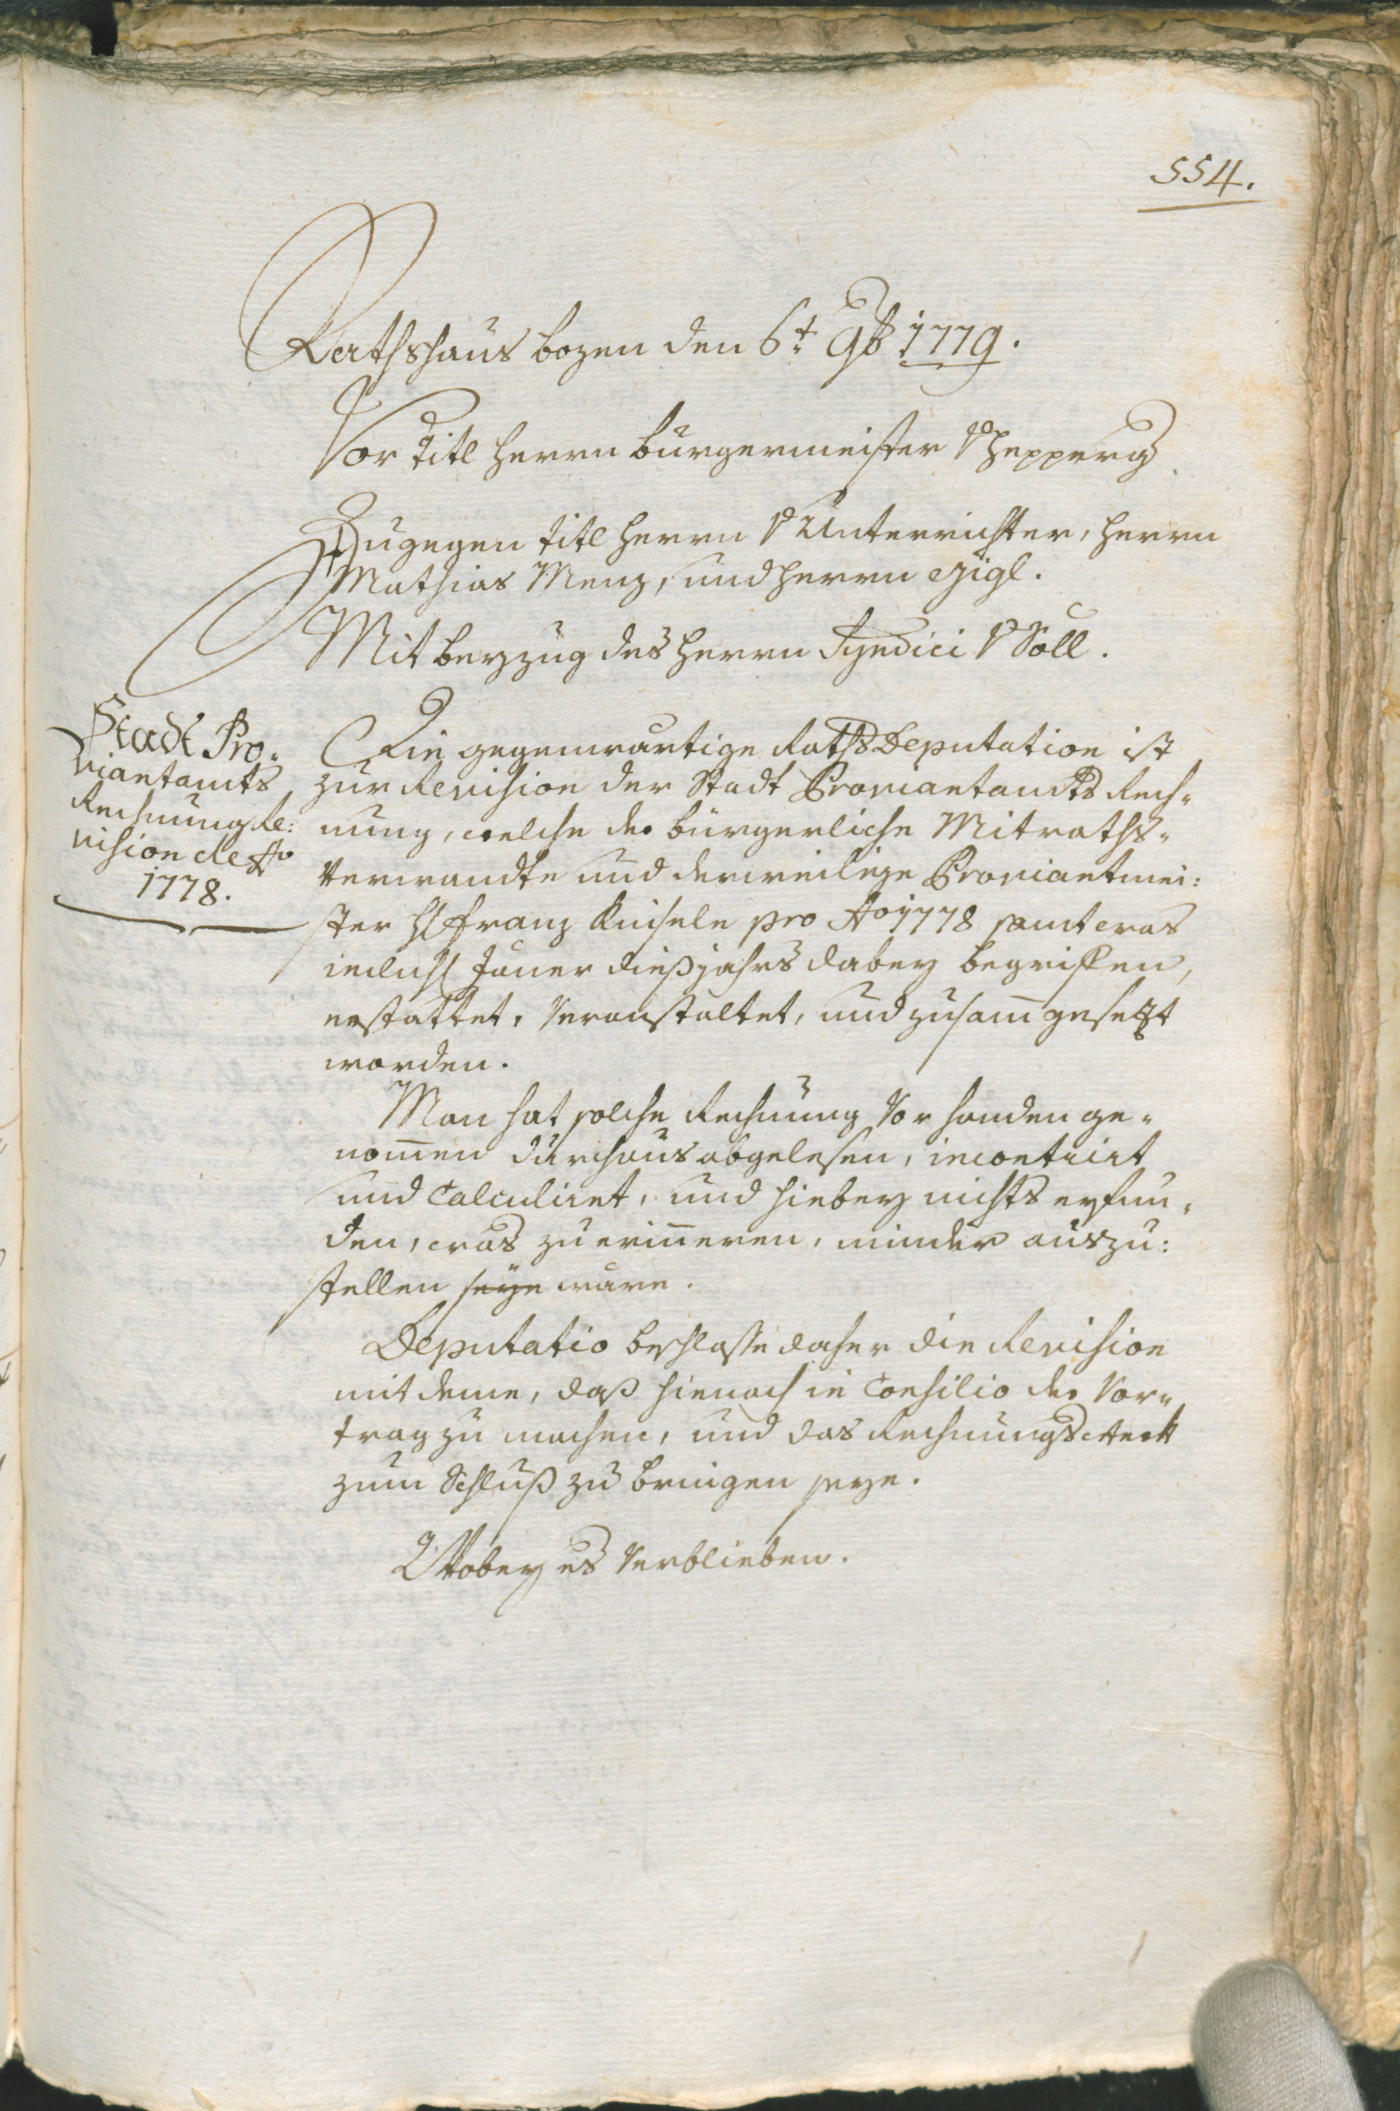 554.
Rathshaus bozen den 6t. 9b 1779.
Vor Titl herrn burgermeister v hepperg
Zugegen titl herrn v Unterrichter, herrn
Mathias Menz, und herrn
Mit beyzug des herrn Syndici v Söll.
Stadt Pro-
viantamts
Rechnung Re:
vision de Ao
1778.
Die gegenwärtige Raths Deputation ist
zur Revision der Stadt Proviantamts Rech-
nung, welche der bürgerliche Mitraths-
verwandte und derweilige Proviantmei:
ster H Franz Kuisele pro Ao 1778 samt was
Jäner diesjahrs dabey begriffen,
erstattet, veranstaltet, und zusamgesetzt
worden.
Man hat solche Rechnung vor handen ge-
nommen durchaus abgelesen, incontrirt
und Calculiret, und hiebey nichts erfun-
den, was zu erinneren, minder auszu:
stellen seye wäre.
Deputatio beschlosse daher die Revision
mit deme, daß hienach in Consilio der Vor-
trag zu machen, und das Rechnungswerk
zum Schluß zu bringen seye.
Wobey es verblieben.